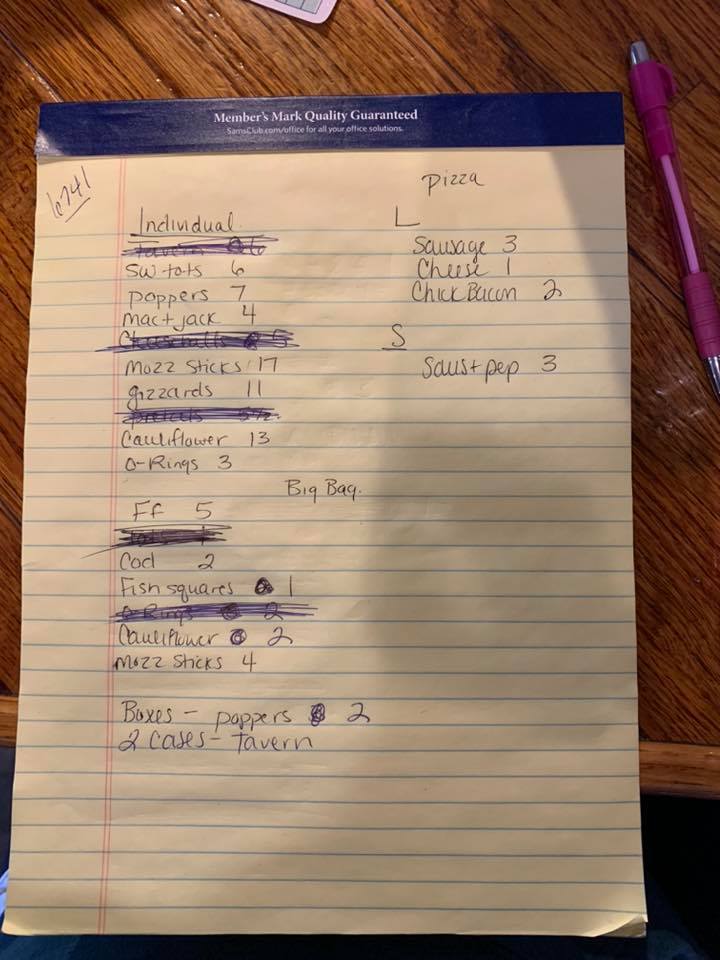 Member's Mark Quality Guaranteed
SamsClub.com/office for all your office solutions.
6741
Individual
Sw tots 6
poppers 7
mac+jack 4
Mozz Sticks 17
gizzards 11
Cauliflower 13
O-Rings 3
Big Bag.
Ff 5
Cod 2
Fish squares 1
O-Rings 2
Cauliflower 2
Mozz Sticks 4
Boxes - poppers 2
2 cases - tavern
pizza
L
Sausage 3
Cheese 1
Chick Bacon 2
S
Saus+pep 3